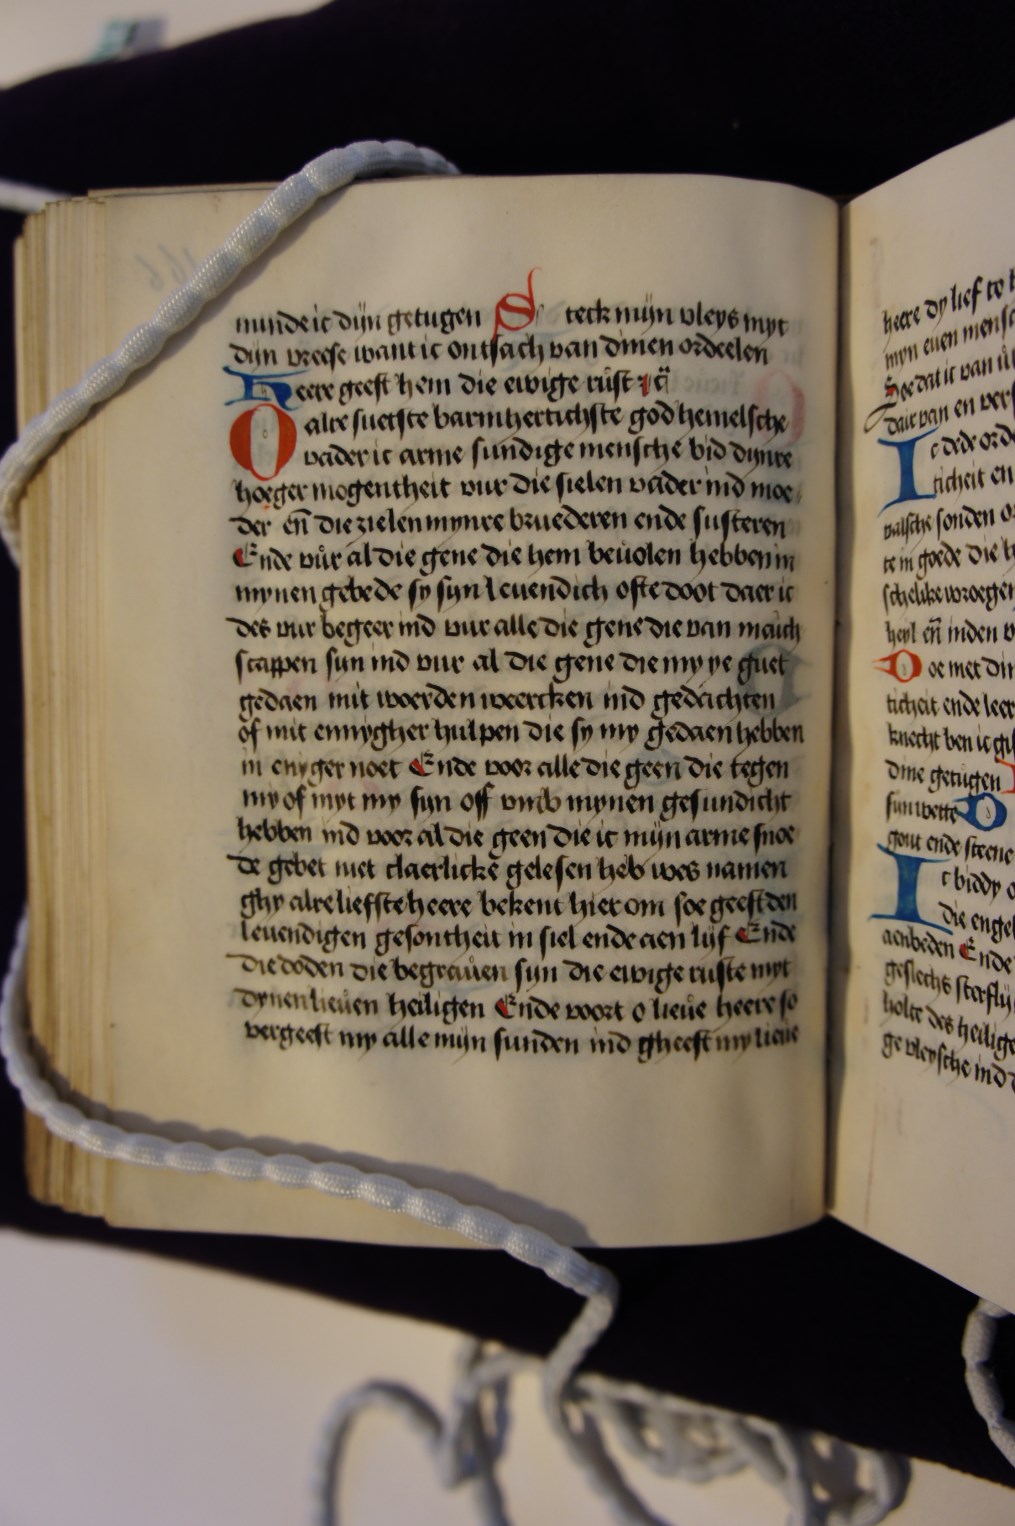 munde ic dijn getugen Steck mijn vleys myt
dijn vreese want ic ontsach van dinen ordeelen
Heere geeft hem die ewige rust ⁊ c̈
O alre suetste barmhertichste god hemelsche
vader ic arme sundige mensche bid dynre
hoeger mogentheit vur die sielen vader ind moe
der en̄ die zielen mynre bruederen ende susteren
Ende vuͦr al die gene die hem beuolen hebben in
mynen gebede sy syn leuendich ofte doot daer ic
des vur begeer ind vur alle die gene die van maich
scappen sun ind vur al die gene die my ye guet
gedaen mit woerden weercken ind gedachten
of mit ennygher hulpen die sy my gedaen hebben
in enyger noet Ende voor alle die geen die tegen
my of myt my syn off vmb mynen gesundicht
hebben ind voor al die geen die ic mijn arme snoe
de gebet niet claerlickē gelesen heb wes namen
ghy alre liefste heere bekent hier om soe geeft den
leuendigen gesontheit in siel ende aen lijf Ende
die doden die begrauen syn die ewige ruste myt
dynen lieuen heiligen Ende voort o lieue heere so
vergeeft my alle mijn sunden ind gheeft my lieue
heere dy lief te
myn euen mensc
Soe dat ic van
dair van en
Ic dede orde
ticheit en
valsche sonden
te in goede die
schelike wroegen
heyl en̄ inden
Doe met din
ticheit ende leer
knecht ben ic
dine getugen
syn wette D
gout ende steene
Ic biddy
die engel
aenbeden Ende
geslechs sterflij
holte des heilige
ge vleysche ind